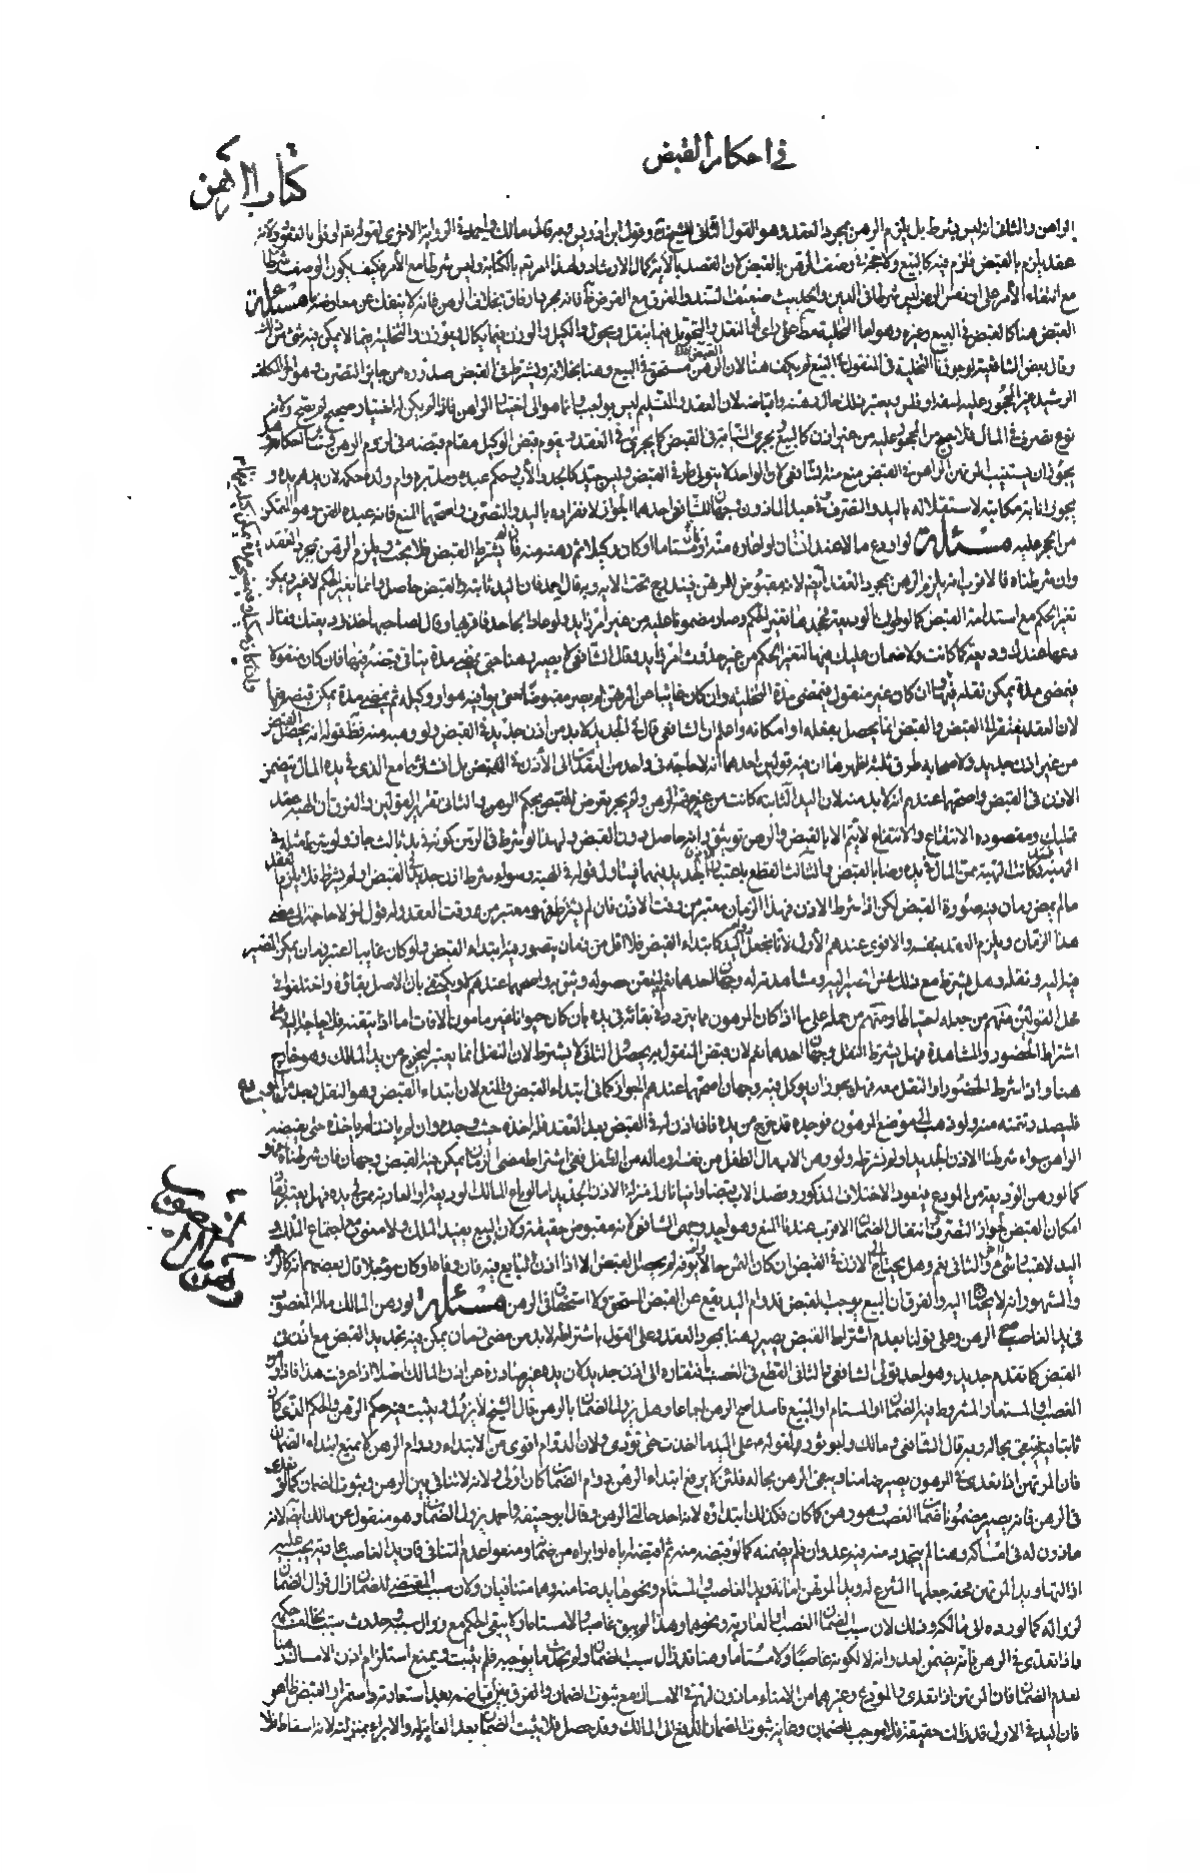 في احكام القبض
كتاب الرهن
الراهن والثاني انه ليس بشرط بل يلزم الرهن بمجرد العقد وهو القول الثاني للشيخ وقول ابن ادريس وبه قال مالك واحمد في الرواية الاخرى لقوله تعم اوفوا بالعقود
عقد يلزم بالقبض فلزم قبله كالبيع ولا حجة في وصف الرهن بالقبض لان القصد بالآية كمال الارشاد ولهذا امر تعم بالكتابة وليس شرطا مع الأمر فكيف يكون الوصف شرطا
مع انتفاء الأمر على ان نفس الرهن ليس شرطا في الدين والحديث ضعيف السند والفرق مع القرض فانه مجرد ارفاق بخلاف الرهن فانه لا ينفك عن معاوضة ما مسئلة
القبض هنا كالقبض في البيع وغيره وهو اما التخلية مط على رأي او النقل والتحويل فيما ينقل ويحول والكيل والوزن فيما يكال ويوزن والتخلية فيما لا يمكن فيه شئ من ذلك
وقال بعض الشافعية لو جوزنا التخلية في المنقول في البيع لم يكف هنا لان القبض مستحق في البيع وهنا بخلافه ويشترط في القبض صدوره من جايز التصرف وهو الحر المكلف
الرشيد غير المحجور عليه لسفه او فلس ويعتبر ذلك حال رهنه واقباضه لان العقد والتسليم ليس بواجب وانما هو الى اختيار الراهن فاذا لم يكن له اختيار صحيح لم يصح ولانه
نوع تصرف في المال فلا يصح من المحجور عليه من غير اذن كالبيع ويجري النيابة في القبض كما يجري في العقد ويقوم قبض الوكيل مقام قبضه في لزوم الرهن وثبت احكامه وهل
يجوز ان يستنيب المرتهن الراهن في القبض منع منه الشافعي لان الواحد لا يتولى طرفي القبض وليس جيدا كالجد والأب وحكم عبده ومدبره وام ولده حكمه لان يدهم يده و
يجوز انابة مكاتبه لاستقلاله باليد والتصرف وفي عبده المأذون وجهان للشافعي احدهما الجواز لانفراده باليد والتصرف واصحهما المنع فانه عبده القن وهو المتمكن
من الحجر عليه مسئلة لو اودع مالا عند انسان او اجاره منه او كان مستاما او كان وكيلا ثم رهنه منه فان لم يشترط القبض فلا بحث ويلزم الرهن بمجرد العقد
وان شرطناه فالاقرب انه يلزم الرهن بمجرد العقد ايضا لانه مقبوض للمرتهن فيندرج تحت الآية وبه قال احمد فان اليد ثابتة والقبض حاصل وانما تغير الحكم لا غير ويمكن
تغير الحكم مع استدامة القبض كما لو طولب بالوديعة فجحدها تغير الحكم وصار مضمونا عليه من غير امر زايد ولو عاد الجاحد فاقر بها وقال لصاحبها خذ وديعتك فقال
دعها عندك وديعة كما كانت ولا ضمان عليك فيها لتغير الحكم من غير حدوث امر زايد وقال الشافعي لا يصير رهنا حتى يمضى مدة يتأتى قبضه فيها فان كان منقولا
فبمضى مدة يمكن نقله فيها وان كان غير منقول فبمضى مدة التخلية وان كان غائبا عن المرتهن لم يصر مقبوضا حتى يوافيه هو او وكيله ثم يمضى مدة يمكن قبضه فيها
لان العقد يفتقر الى القبض والقبض انما يحصل بفعله او امكانه واعلم ان الشافعي قال في الجديد لا بد من اذن جديد في القبض ولو وهبه منه فظ قوله انه يحصل القبض
من غير اذن جديد ولاصحابه طرق ثلثة اظهرها ان فيه قولين احدهما انه لا حاجة في واحد من العقدين الى الأذن في القبض بل انشاؤهما مع الذي في يده المال يتضمن
الاذن في القبض واصحهما عندهم انه لا بد منه لان اليد الثابتة كانت من غير جهة الرهن ولم يجر تعرض للقبض بحكم الرهن والثاني تقرير القولين والفرق ان الهبة عقد
تمليك ومقصوده الانتفاع والانتفاع لا يتم الا بالقبض والرهن توثيق وانه حاصل دون القبض ولهذا لو شرط في الرهن كونه في يد ثالث جاز ولو شرط مثله في
الهبة فسد وكانت الهبة ممن المال في يده رضا بالقبض والثالث القطع باعتبار الاذن الجديد فيهما وتأول قوله في الهبة وسواء شرط اذن جديد في القبض او لم يشترط فلا يلزم العقد
ما لم يمض زمان فيه صورة القبض لكن اذا شرط الاذن فهذا الزمان معتبر من وقت الاذن فان لم يشترط فهو معتبر من وقت العقد وله قول انه لا حاجة الى مضى
هذا الزمان ويلزم العقد بنفسه والاقوى عندهم الأول لانا نجعل دوام اليد كابتداء القبض فلا اقل من زمان يتصور فيه ابتداء القبض ولو كان غايبا اعتبر زمان يمكن المصير
فيه اليه ونقله وهل يشترط مع ذلك نفس المصير اليه ومشاهدته له وجهان احدهما نعم ليتيقن حصوله ويثق به واصحهما عندهم لا ويكتفى بان الاصل بقاؤه واختلفوا في
محل القولين منهم من جعله احتياطا ومنهم من حمله على ما اذا كان المرهون مما يتردد في بقائه في يده بان كان حيوانا غير مأمون الآفات اما اذا تيقنه فلا حاجة اليه وعلى
اشتراط الحضور والمشاهدة فهل يشترط النقل وجهان احدهما نعم لان قبض المنقول به يحصل والثاني لا يشترط لان النقل انما يعتبر ليخرج من يد المالك وهو خارج
هنا واذا شرط الحضور او النقل معه فهل يجوز ان يوكل فيه وجهان اصحهما عندهم الجواز كما في ابتداء القبض والمنع لان ابتداء القبض وهو النقل وجد من المودع
فليصدر تتمته منه ولو ذهب الى موضع المرهون فوجده قد خرج من يده فان اذن له في القبض بعد العقد فله اخذه حيث وجده وان لم يأذن لم يأخذه حتى يقبضه
الراهن سواء شرطنا الاذن الجديد او لم نشترطه ولو رهن الاب مال الطفل من نفسه او ماله من الطفل ففي اشتراط مضى زمان يمكن فيه القبض وجهان فان شرطناه فهو
كما لو رهن الوديعة من المودع فيعود الاختلاف المذكور وقصد الاب قبضا واقباضا نازل منزلة الاذن الجديد اما لو باع المالك الوديعة او العارية ممن في يده فهل يعتبر زمان
امكان القبض لجواز التصرف وانتقال الضمان الاقرب عندنا المنع وهو احد وجهي الشافعي لانه مقبوض حقيقة ولان البيع يفيد الملك ولا معنى مع اجتماع الملك و
اليد لاعتبار شئ اخر والثاني نعم وهل يحتاج الى الاذن في القبض ان كان الثمن حالا ولم يوفه لم يحصل القبض الا اذا اذن البايع فيه فان وفاه او كان مؤجلا قال بعضهم انه كالرهن
والمشهور انه لا يحتاج اليه والفرق ان البيع يوجب القبض فدوام اليد يقع عن القبض المستحق ولا استحقاق في الرهن مسئلة لو رهن المالك ماله المغصوب
في يد الغاصب صح الرهن وعلى قولنا بعدم اشتراط القبض يصير رهنا بمجرد العقد وعلى القول باشتراطه لا بد من مضى زمان يمكن فيه تجديد القبض مع اذن في
القبض كما تقدم جديد وهو احد قولي الشافعي والثاني القطع في الغصب بافتقاره الى اذن جديد لان يده غير صادرة عن اذن المالك اصلا اذا عرفت هذا فاذا رهن
الغصب او المستعار المشروط فيه الضمان او المستام او المبيع فاسدا صح الرهن اجماعا وهل يزول الضمان بالرهن قال الشيخ لا يزول ويثبت فيه حكم الرهن والحكم الذي كان
ثابتا فيه يبقى بحاله وبه قال الشافعي ومالك وابو ثور لقوله ع على اليد ما اخذت حتى تؤدي ولان الدوام اقوى من الابتداء ودوام الرهن لا يمنع ابتداء الضمان
فان المرتهن اذا تعدى في المرهون يصير ضامنا ويبقى الرهن بحاله فلئن لا يرفع ابتداء الرهن دوام الضمان كان اولى ولانه لا تنافي بين الرهن وثبوت الضمان كما لو تعدى
في الرهن فانه يصير مضمونا ضمان الغصب وهو رهن كما كان فكذلك ابتداؤه لانه احد حالتي الرهن وقال ابو حنيفة واحمد يزول الضمان وهو منقول عن مالك ايضا لانه
ماذون له في امساكه رهنا لم يتجدد منه فيه عدوان فلم يضمنه كما لو قبضه منه ثم اقبضه اياه او ابراه من ضمانه ومنعوا عدم التنافي فان يد الغاصب عادية يجب عليه
ازالتها ويد المرتهن محقة جعلها الشرع له ويد المرتهن امانة ويد الغاصب والمستام ونحوهما يد ضامنة وهما متنافيان ولان سبب المقتضي للضمان زال فزال الضمان
لزواله كما لو رده الى مالكه وذلك لان سبب الضمان الغصب او العارية ونحوهما وهذا لم يبق غاصبا ولا مستاما ولا يبقى الحكم مع زوال سببه وحدوث سبب يخالف حكمه
واذا تعدى في الرهن فانه يضمن لعدوانه لا لكونه غاصبا ولا مستاما وهنا قد زال سبب الضمان ولم يحدث ما يوجبه فلم يثبت ويمنع استلزام اذن الامساك رهنا
لعدم الضمان فان المرتهن اذا تعدى والمودع وغيرهما من الامناء ماذون لهم في الامساك مع ثبوت الضمان والفرق بين اقباضه بعد استعادته واستمرار القبض ظاهر
فان اليد في الاولى قد زالت حقيقة فلا موجب للضمان وغاية ثبوت الضمان الدفع الى المالك وقد حصل فلا يثبت الضمان بعد الغاية والابراء بمنزلته لانه اسقاط فلا